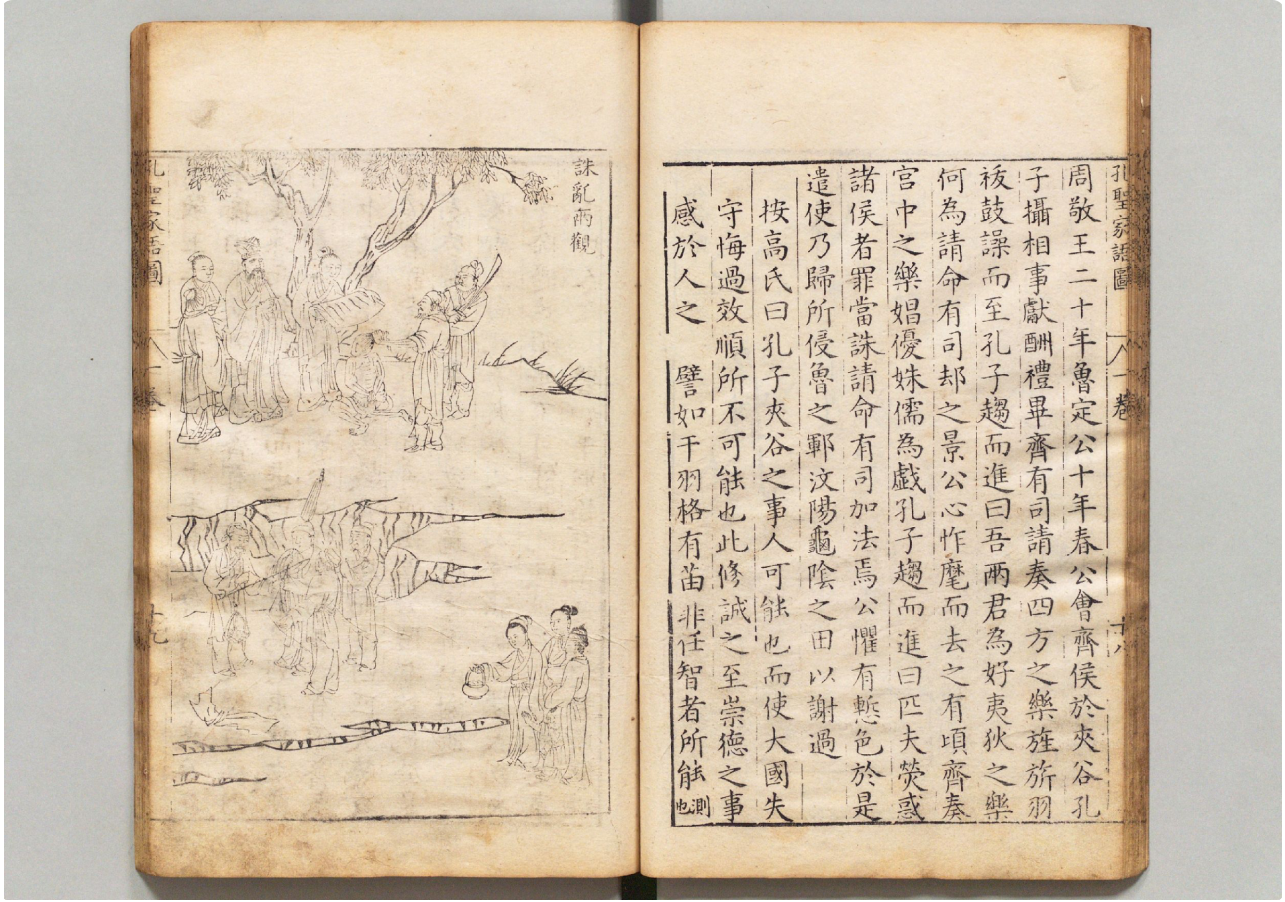 孔聖家語圖
一卷
十八
周敬王二十年魯定公十年春公會齊侯於夾谷孔
子攝相事獻酬禮畢齊有司請奏四方之樂旌旂羽
祓鼓譟而至孔子趨而進曰吾兩君為好夷狄之樂
何為請命有司却之景公心怍麾而去之有頃齊奏
宮中之樂娼優姝儒為戲孔子趨而進曰匹夫熒惑
諸侯者罪當誅請命有司加法焉公懼有慙色於是
遣使乃歸所侵魯之鄆汶陽龜陰之田以謝過
按高氏曰孔子夾谷之事人可能也而使大國失
守悔過效順所不可能也此修誠之至崇德之事
感於人之 譬如干羽格有苗非任智者所能測也
誅亂兩觀
孔聖家語圖
一卷
十九